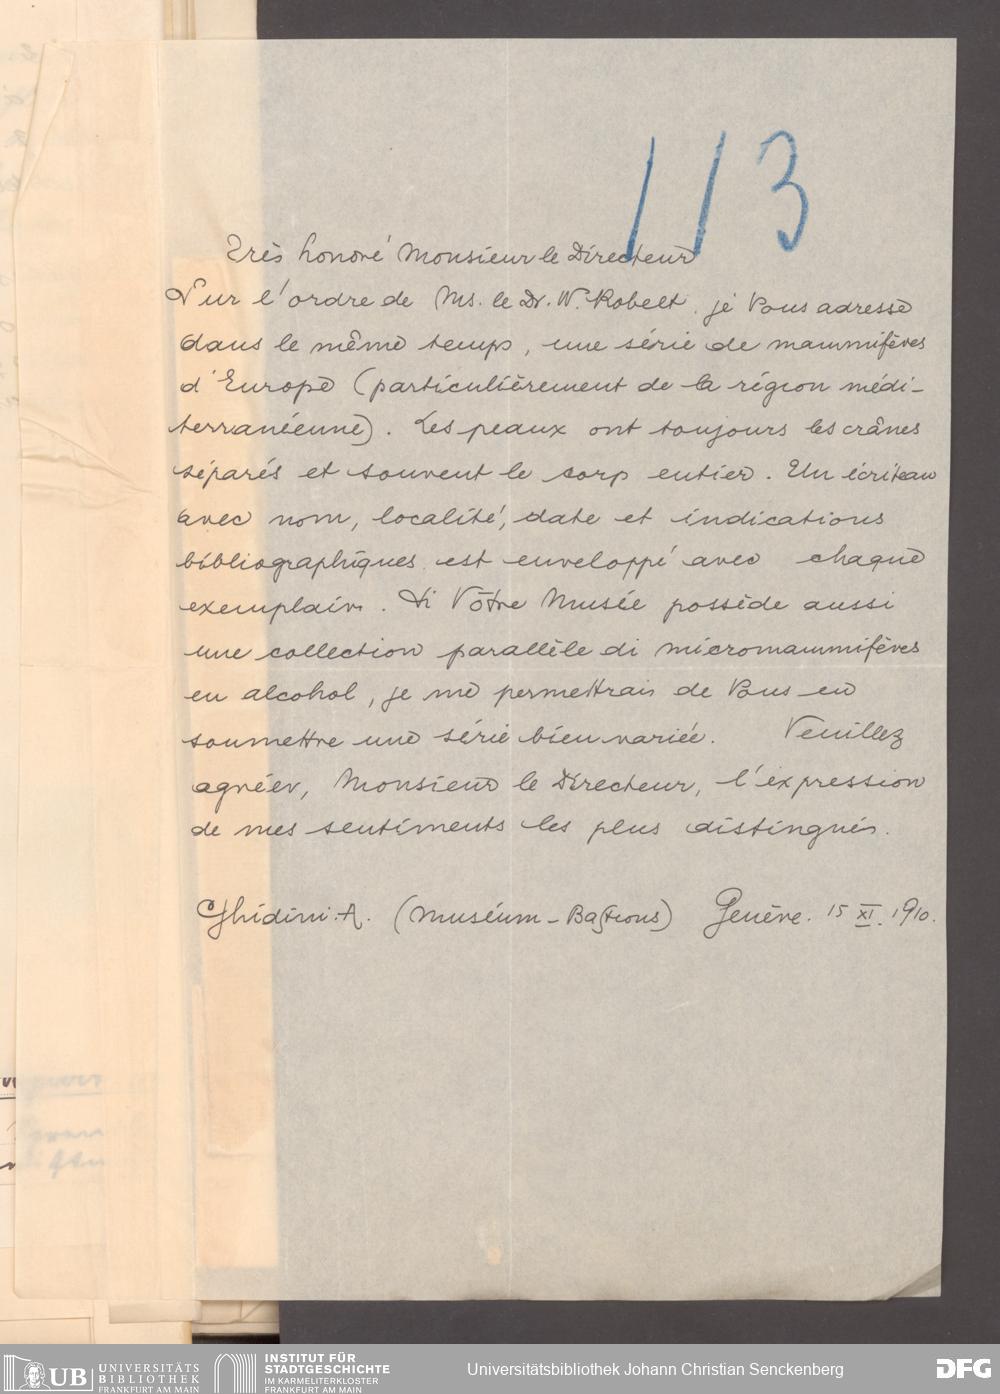 113
Très honoré Monsieur le Directeur
Sur l'ordre de Ms. le Dr. W. Kobelt je Vous adresse
dans le même temps, une série de mammifères
d'Europe (particulièrement de la région médi-
terranéenne). Les peaux ont toujours les crânes
séparés et souvent le corp entier. Un écriteau
avec nom, localité, date et indications
bibliographiques est enveloppé avec chaque
exemplaire. Si Vôtre Musée possède aussi
une collection parallèle di micromammifères
en alcohol, je me permettrais de Vous en
soumettre une série bien variée. Veuillez
agréer, Monsieur le Directeur, l'expression
de mes sentiments les plus distingués.
Ghidini A. (Muséum - Bastions) Genève. 15 XI. 1910.
UB UNIVERSITÄTS
BIBLIOTHEK
FRANKFURT AM MAIN
INSTITUT FÜR
STADTGESCHICHTE
IM KARMELITERKLOSTER
FRANKFURT AM MAIN
Universitätsbibliothek Johann Christian Senckenberg
DFG